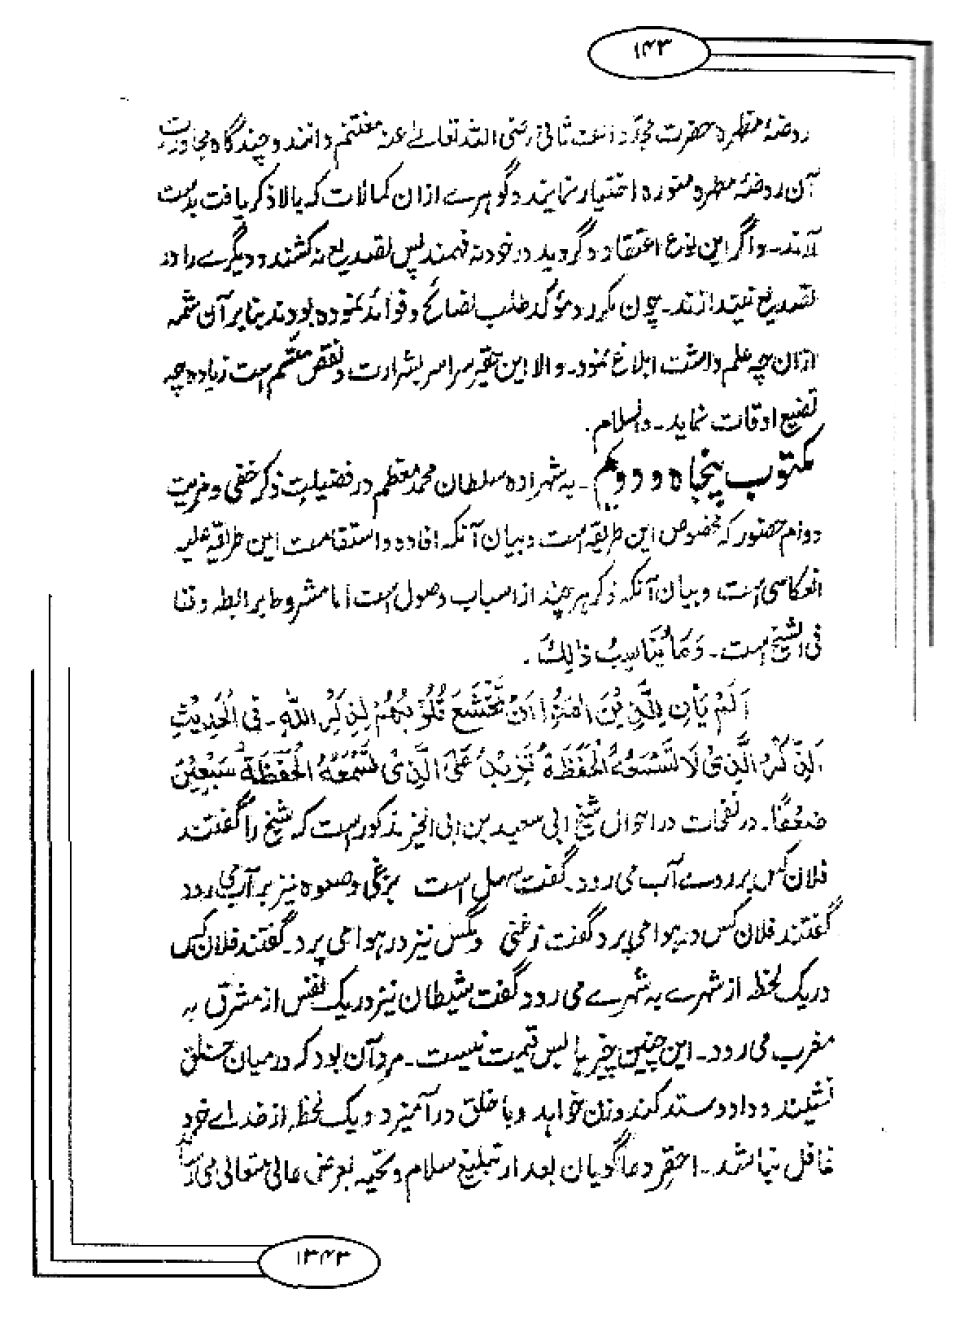 ۱۴۳
روضۂ مطهره حضرت مجدد الف ثانی رضی اللہ تعالےٰ عنہ مغتنم دانند و چند گاه مجاورت
آن روضۂ مطهره منوره اختیار نمایند و گوهرے ازان کمالات که بالا ذکر یافت بدست
آرند۔ و اگر این نوع اعتقاد و گردید در خود نہ فهمند پس تصدیع نہ کشند و دیگرے را در
تصدیع نیندازند۔ چون مکرر و مؤکد طلب نصائح و فوائد نموده بودند بنابر آن شمہ
ازان چہ علم داشت ابلاغ نمود۔ والا این حقیر سراسر بشرارت و نقص متهم است زیاده چہ
تضیع اوقات نماید۔ والسلام۔
مکتوب پنجاه و دویم۔ بہ شہزاده سلطان محمد معظم در فضیلت ذکر خفی و مزیت
دوام حضور کہ مخصوص این طریقہ است و بیان آنکہ افاده و استقامت این طریقہ علیہ
انعکاسی است و بیان آنکہ ذکر هر چند از اسباب وصول است اما مشروط برابطہ و فنا
فی الشیخ است۔ وَمَا يُنَاسِبُ ذَالِكَ۔
اَلَمْ يَأْنِ لِلَّذِيْنَ اٰمَنُوْا اَنْ تَخْشَعَ قُلُوْبُهُمْ لِذِكْرِ اللهِ۔ فِى الْحَدِيْثِ
اَلذِّكْرُ الَّذِىْ لَا تَسْمَعُهُ الْحَفَظَةُ تَزِيْدُ عَلَى الَّذِىْ تَسْمَعُهُ الْحَفَظَةُ سَبْعِيْنَ
ضِعْفًا۔ در نفحات در احوال شیخ ابی سعید بن ابی الخیر مذکور است کہ شیخ را گفتند
فلان کس بر روے آب می رود۔ گفت سہل است بزغی و صعوه نیز بر آب می رود
گفتند فلان کس در هوا می پرد گفت زغنی و مگس نیز در هوا می پرد۔ گفتند فلان کس
در یک لحظہ از شہرے بہ شہرے می رود گفت شیطان نیز در یک نفس از مشرق بہ
مغرب می رود۔ این چنین چیزها بس قیمت نیست۔ مرد آن بود کہ در میان خلق
نشیند و داد و ستد کند و زن خواهد و با خلق در آمیزد و یک لحظہ از خداے خود
غافل نباشد۔ احقر دعا گویان بعد از تبلیغ سلام و تحیہ بعرض عالی متعالی می رساند
۱۳۴۳